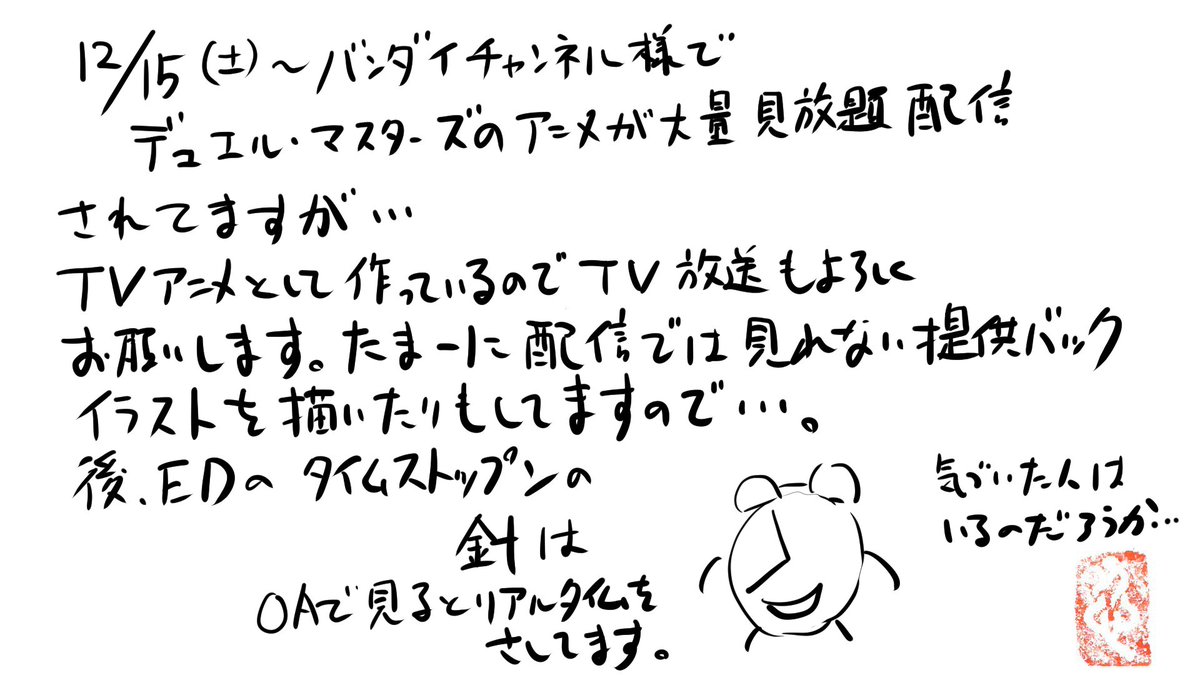 12/15(土)~バンダイチャンネル様で
デュエル・マスターズのアニメが大量見放題配信
されてますが…
TVアニメとして作っているのでTV放送もよろしく
お願いします。たまーに配信では見れない提供バック
イラストを描いたりもしてますので…。
後、EDのタイムストップンの
針は
OAで見るとリアルタイムを
さしてます。
気づいた人は
いるのだろうか…